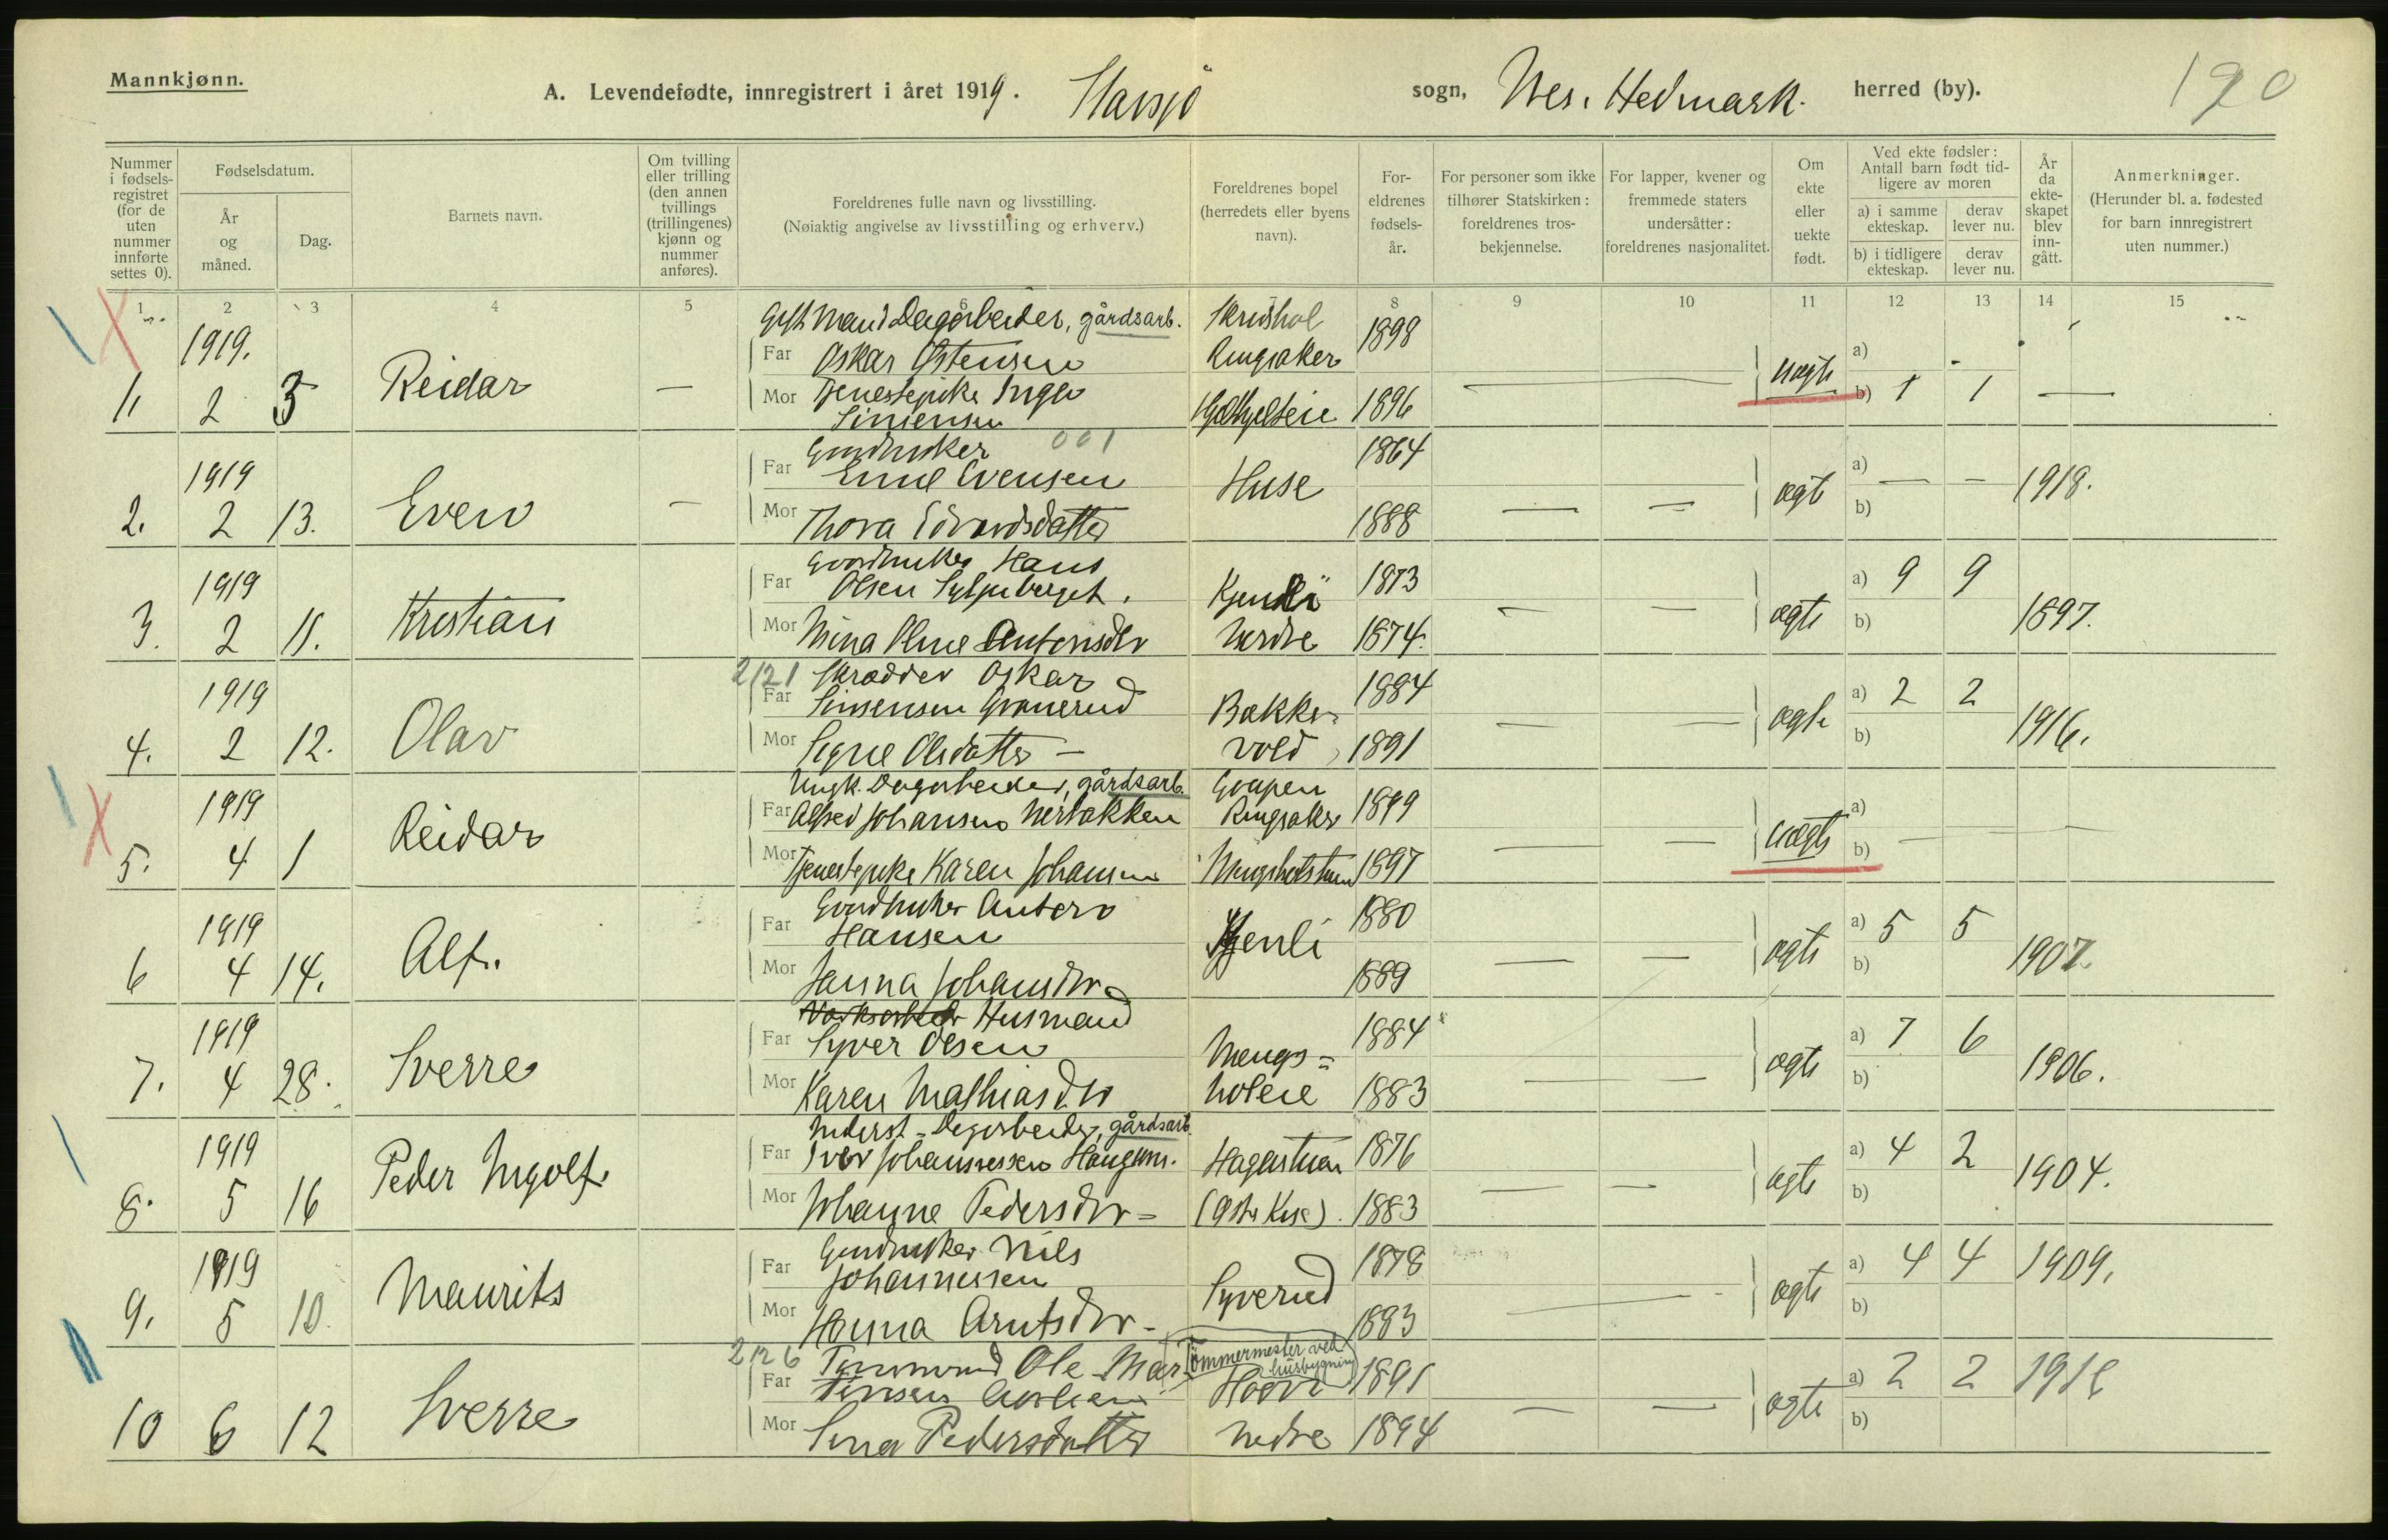 Mannkjønn.
A. Levendefødte, innregistrert i året 1919. Stavsjø sogn, Nes. Hedmark. herred (by). 190
Nummer i fødsels-registret (for de uten nummer innførte settes 0).
Fødselsdatum.
År og måned.
Dag.
Barnets navn.
Om tvilling eller trilling (den annen tvillings (trillingenes) kjønn og nummer anføres).
Foreldrenes fulle navn og livsstilling.
(Nøiaktig angivelse av livsstilling og erhverv.)
Foreldrenes bopel (herredets eller byens navn).
For-eldrenes fødsels-år.
For personer som ikke tilhører Statskirken: foreldrenes tros-bekjennelse.
For lapper, kvener og fremmede staters undersåtter: foreldrenes nasjonalitet.
Om ekte eller uekte født.
Ved ekte fødsler: Antall barn født tid-ligere av moren
a) i samme ekteskap. derav lever nu.
b) i tidligere ekteskap. derav lever nu.
År da ekte-skapet blev inn-gått.
Anmerkninger.
(Herunder bl. a. fødested for barn innregistrert uten nummer.)
1 2 3 4 5 6 8 9 10 11 12 13 14 15
Gift Mand Dagarbeider, gårdsarb. Skredshol
1919. Far Oskar Østensen Ringsaker 1898 a)
1. 2 3 Reidar — Mor Tjenestepike Inga uægte b) 1 1 —
Simensen 1896
Gardbruker 001
1919 Far Emil Evensen Huse 1864 a) — — 1918.
2. 2 13. Even — Mor Thora Edvardsdatter 1888 — — ægte b)
Gardbruker Hans
1919 Far Olsen Syljuberget. Kjenli 1873 a) 9 9
3. 2 11. Kristian Mor Mina Oline Antonsdtr nedre 1874. — — ægte b) 1897.
2121 Skrædder Oskar
1919 Far Simensen Granerud Bakke- 1884 a) 2 2
4. 2 12. Olav Mor Signe Olsdatter — vold 1891 — — ægte b) 1916.
Ungk. Dagarbeider, gårdsarb.
1919 Far Alfred Johansen Nerbakken Ringsaker 1899 a)
5. 4 1 Reidar Mor Tjenestepike Karen Johansen 1897 — — uægte b) —
Gardbruker Anton
1919 Far Hansen Kjenli 1880 a) 5 5
6 4 14. Alf. Mor Janna Johansdtr. 1889 — — ægte b) 1907.
Husmand
1919 Far Syver Olsen Mengs= 1884 a) 7 6
7. 4 28. Sverre Mor Karen Mathiasdtr holeie 1883 — — ægte b) 1906.
Inderst - Dagarbeider, gårdsarb.
1919 Far Iver Johannessen Hagastuen 1876 a) 4 2
8. 5 16 Peder Ingolf. Mor Johanne Pedersdtr - 1883 — — ægte b) 1904.
Gardbruker Nils
1919 Far Johannessen Syverud 1878 a) 4 4 1909.
9. 5 10. Maurits Mor Hanna Arntsdtr - 1883 — ægte b)
2126 Tømmermd Ole Mar- Tømmermester ved husbygning
Far tinsen 1891 a) 2 2
10 6 12 Sverre Mor Sina Pedersdatter nedre 1894 — — ægte b)